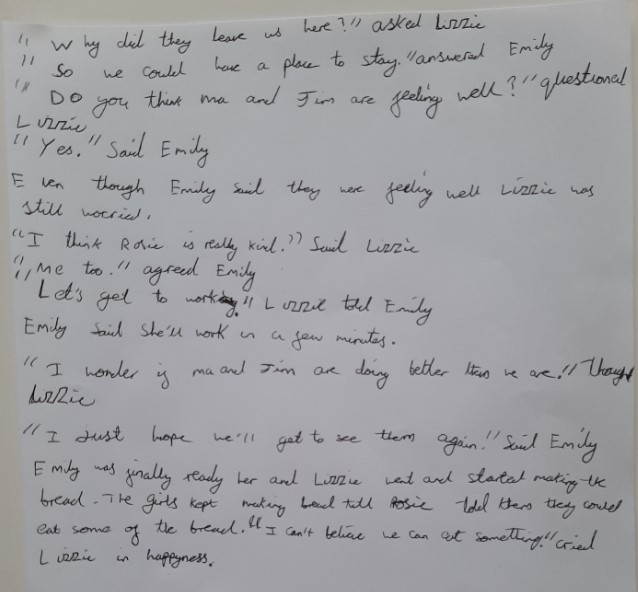 "Why did they leave us here?" asked Lizzie
"So we could have a place to stay." answered Emily
"Do you think ma and Jim are feeling well?" questioned
Lizzie
"Yes." Said Emily
Even though Emily said they were feeling well Lizzie was
still worried.
"I think Rosie is really kind." Said Lizzie
"Me too." agreed Emily
"Let's get to work." Lizzie told Emily
Emily said she'll work in a few minutes.
"I wonder if ma and Jim are doing better than we are." thought
Lizzie
"I Just hope we'll get to see them again." Said Emily
Emily was finally ready her and Lizzie went and started making the
bread. The girls kept making bread till Rosie told them they could
eat some of the bread. "I can't believe we can eat something." cried
Lizzie in happyness.